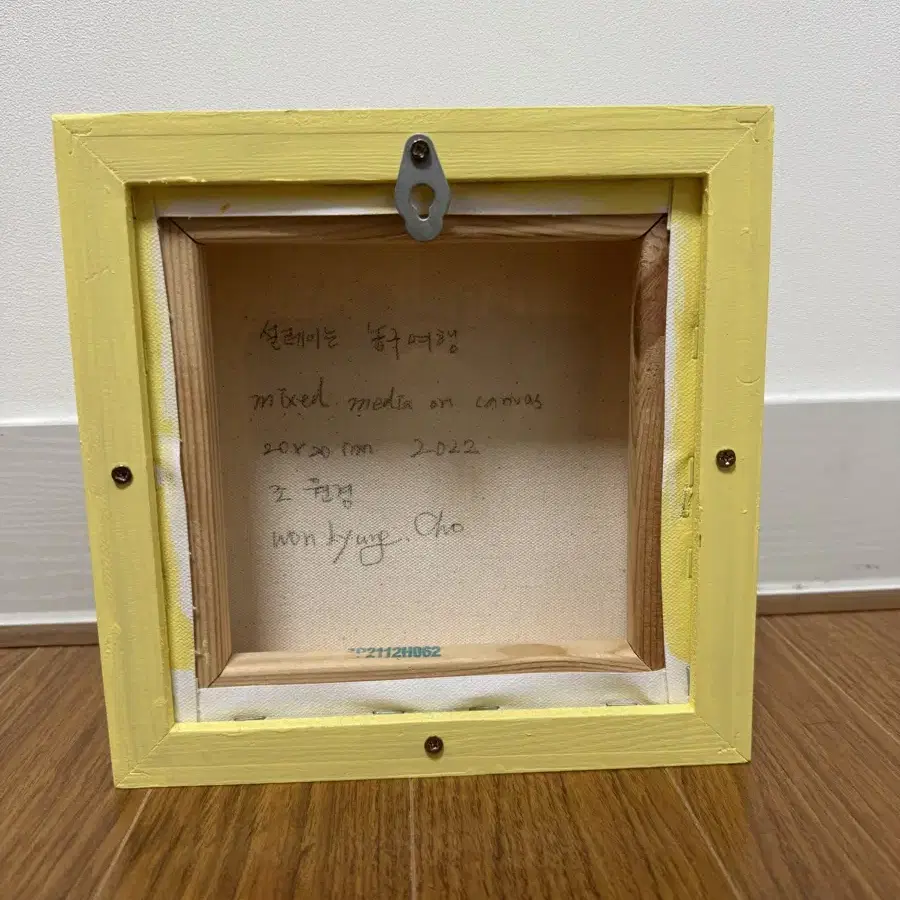 설레이는 동국여행
mixed media on canvas
20x20cm 2022
조 원경
Won kyung. Cho
2112H062